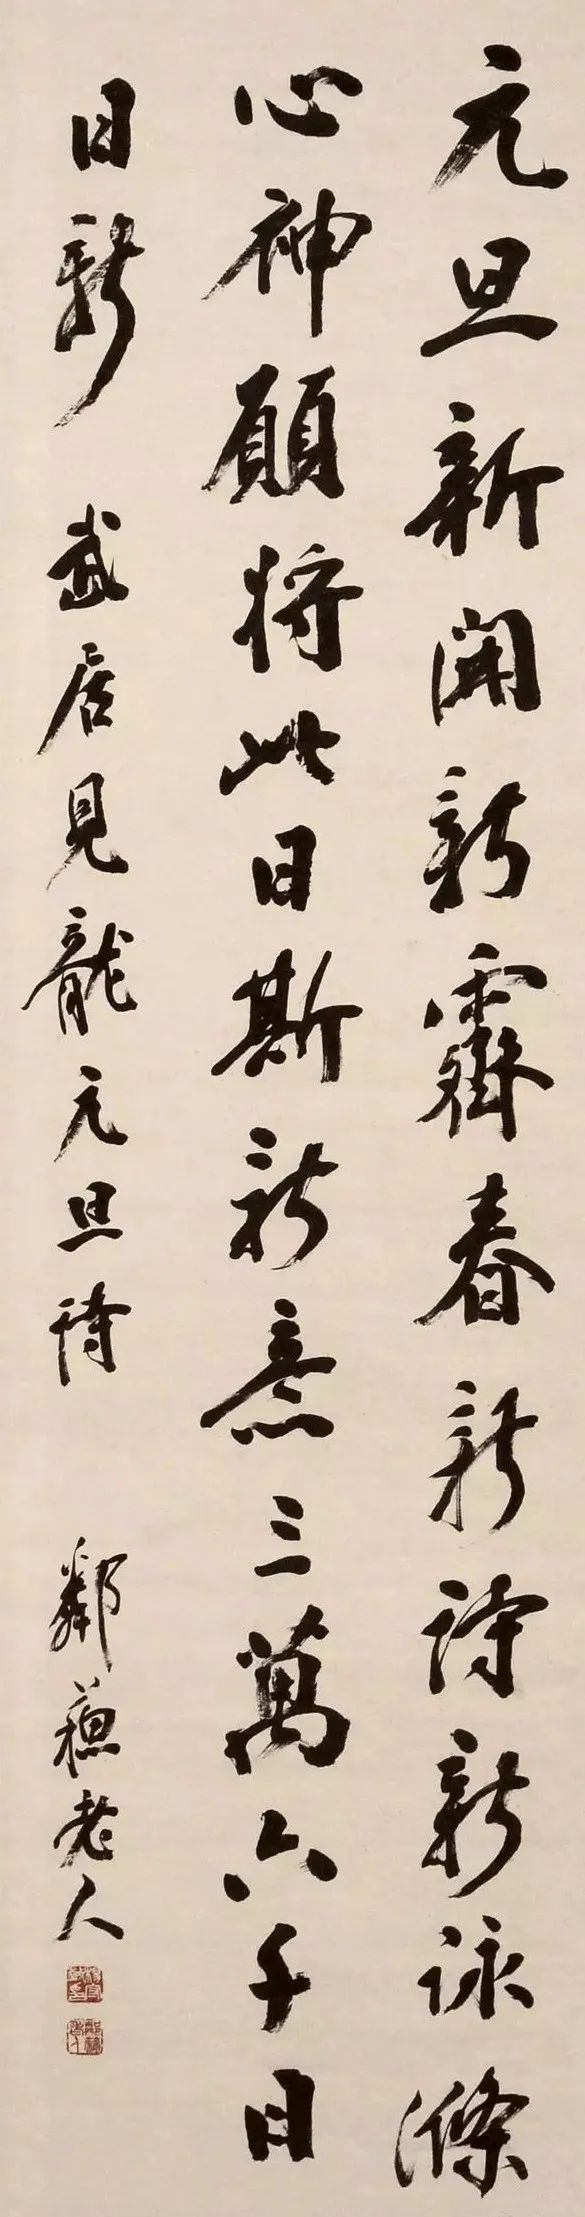 元旦新開新霽春新詩新詠滌
心神願將此日斯新意三萬六千日
日新 武居見龍元旦詩 鄰蘇老人